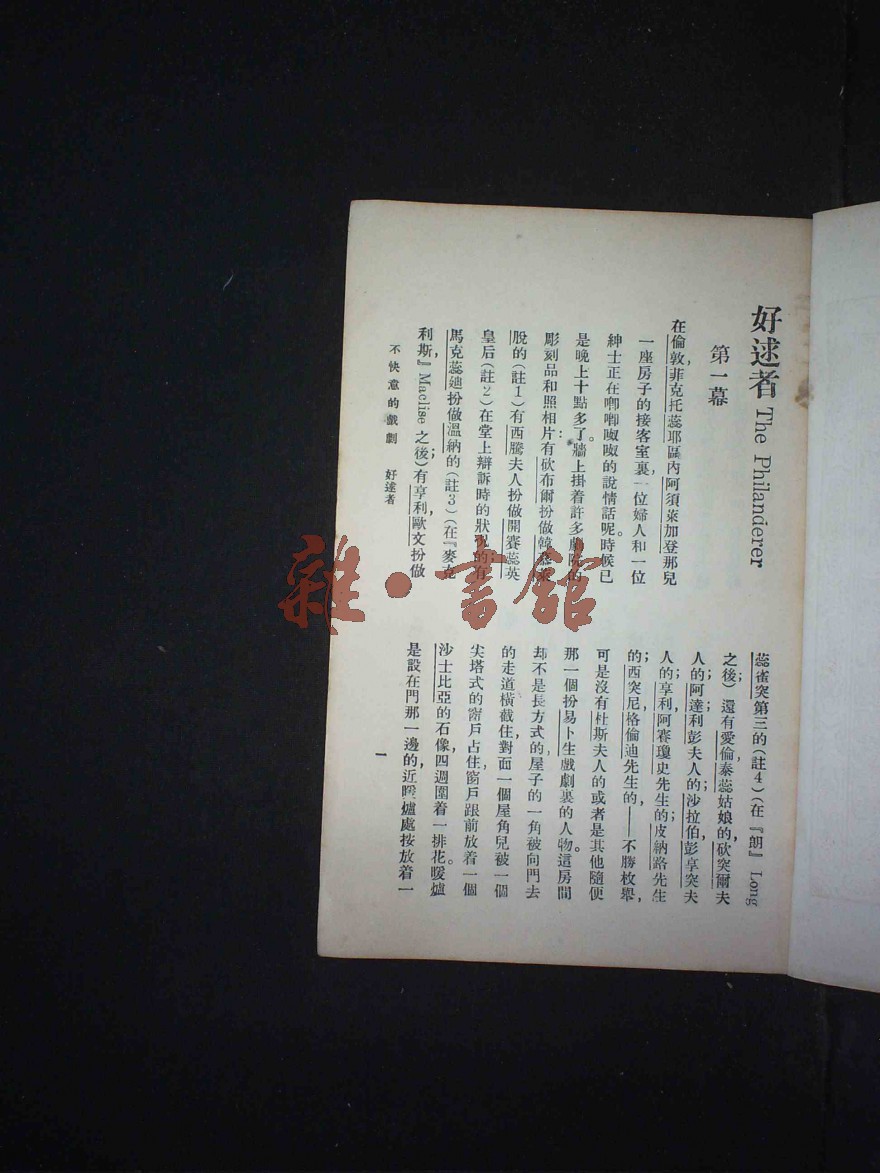 好逑者 The Philanderer
第一幕
在倫敦,菲克托蕊耶區內阿須萊加登那兒
一座房子的接客室裏,一位婦人和一位
紳士正在唧唧啾啾的說情話呢時候已
是晚上十點多了。牆上掛着許多劇院的
彫刻品和照相片:有砍布爾扮做韓慕萊
股的(註1)有西騰夫人扮做開賽蕊英
皇后(註2)在堂上辯訴時的狀況的有
馬克蕊廸扮做溫納的(註3)(在『麥克
利斯』Maclise之後);有享利,歐文扮做
蕊雀突第三的(註4)(在『朗』Long
之後)還有愛倫泰蕊姑娘的,砍突爾夫
人的;阿達利彭夫人的;沙拉伯彭享突夫
人的;享利阿賽瓊史先生的;皮納路先生
的;西突尼格倫迪先生的,——不勝枚舉,
可是沒有杜斯夫人的或者是其他隨便
那一個扮易卜生戲劇裏的人物。這房間
却不是長方式的,屋子的一角被向門去
的走道橫截住,對面一個屋角兒被一個
尖塔式的窗戶占住,窗戶跟前放着一個
沙士比亞的石像,四週圍着一排花。暖爐
是設在門那一邊的,近暖爐處按放着一
不快意的戲劇 好逑者
一
雜·書館